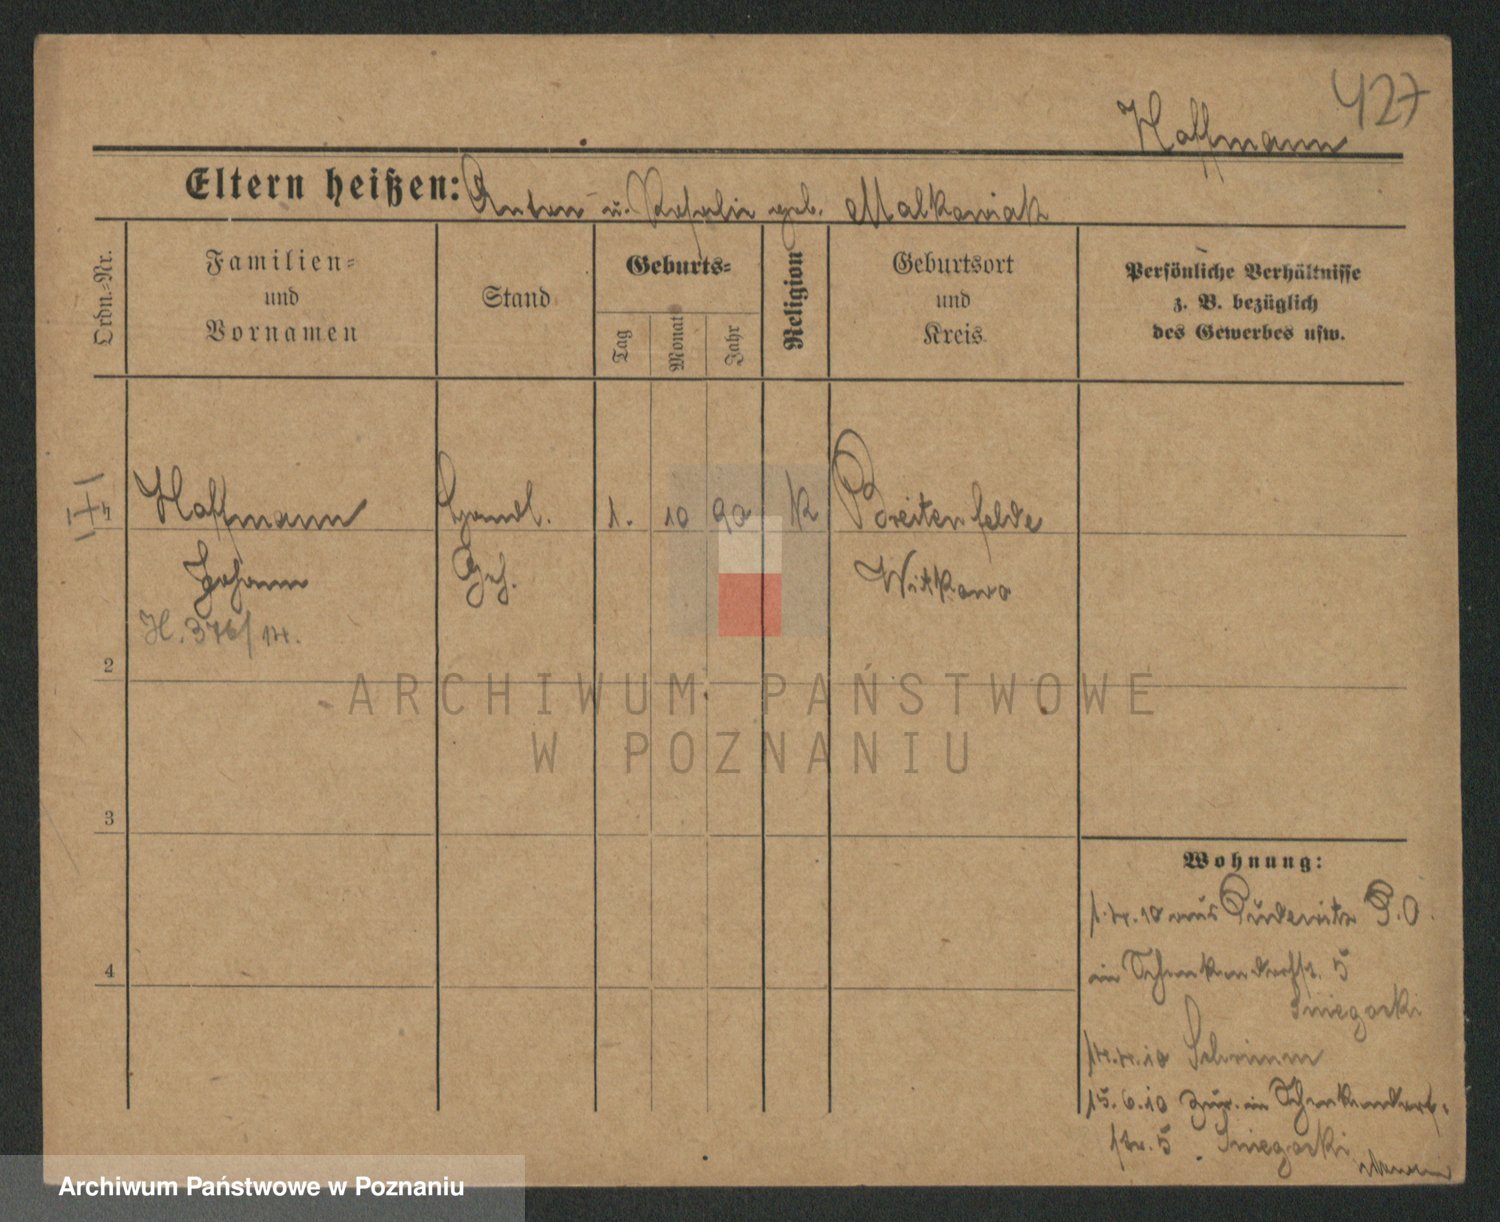 427
Hoffmann
Eltern heißen: Anton u. Rosalie geb. Malkowiak
Ordn.-Nr.
Familien-
und
Vornamen
Stand
Geburts-
Tag
Monat
Jahr
Religion
Geburtsort
und
Kreis
Persönliche Verhältnisse
z. B. bezüglich
des Gewerbes usw.
Hoffmann
Handl.
1.
10
90
K
Breitenfelde
Johann
Geh.
Witkowo
H. 376/14.
2
ARCHIWUM PAŃSTWOWE
W POZNANIU
3
Wohnung:
1.4.10 aus Pudewitz P.O.
in Schenkendorfstr. 5
Sniegocki
14.4.10 Schrimm
15.6.10 zur. in Schenkendorf-
str. 5. Sniegocki
4
Archiwum Państwowe w Poznaniu